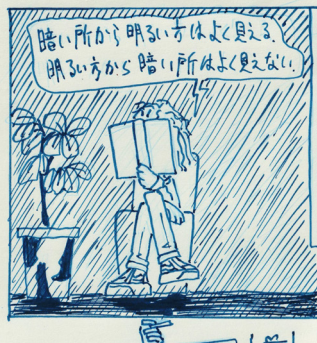 暗い所から明るい方はよく見える.
明るい方から暗い所はよく見えない.